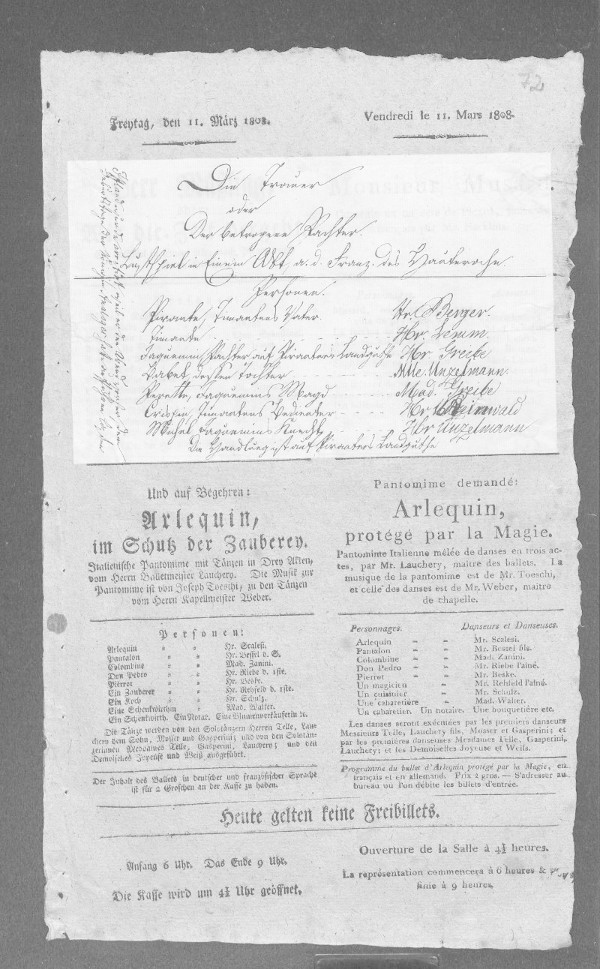 72
Freytag, den 11. März 1808.
Vendredi le 11. Mars 1808.
Die Trauer
oder
Der betrogene Pachter
Lustspiel in Einem Akt a. d. Franz. des Hauteroche
Personen.
Pirante, Timantens Vater Hr. Berger.
Timante Hr.
Jaquemin, Pachter auf Pirantens Landgüthe Hr Greibe
Babet dessen Tochter Mlle Unzelmann
Perette, Jaquemins Magd Mad. Greibe
Crispin, Timantens Bedienter Hr. Reinwald
Jaquemins Knecht Hr Unzelmann
Die Handlung ist auf Pirantens Landguthe
Und auf Begehren:
Arlequin,
im Schutz der Zauberey.
Italienische Pantomime mit Tänzen in Drey Akten,
vom Herrn Balletmeister Lauchery. Die Musik zur
Pantomime ist von Joseph Toeschi, zu den Tänzen
vom Herrn Kapellmeister Weber.
Personen:
Arlequin " " Hr. Scalesi.
Pantalon " " Hr. Bessel d. S.
Colombine " " Mad. Zanini.
Don Pedro " " Hr. Riebe d. 1ste.
Pierrot " " Hr. Beske.
Ein Zauberer " " Hr. Rehfeld d. 1ste.
Ein Koch " " Hr. Schulz.
Eine Schenkwirthin " Mad. Walter.
Ein Schenkwirth. Ein Notar. Eine Blumenverkäuferin ꝛc.
Die Tänze werden von den Solotänzern Herren Telle, Lau-
chery dem Sohn, Moser und Gasperini; und von den Solotän-
zerinnen Mesdames Telle, Gasperini, Lauchery; und den
Demoiselles Joyeuse und Weiß ausgeführt.
Der Inhalt des Ballets in deutscher und französischer Sprache
ist für 2 Groschen an der Kasse zu haben.
Pantomime demandé:
Arlequin,
protégé par la Magie.
Pantomime Italienne mêlée de danses en trois ac-
tes, par Mr. Lauchery, maître des ballets. La
musique de la pantomime est de Mr. Toeschi,
et celle des danses est de Mr. Weber, maître
de chapelle.
Personnages. Danseurs et Danseuses.
Arlequin " " Mr. Scalesi.
Pantalon " " Mr. Bessel fils.
Colombine " " Mad. Zanini.
Don Pedro " " Mr. Riebe l'ainé.
Pierrot " " Mr. Beske.
Un magicien " " Mr. Rehfeld l'ainé.
Un cuisinier " " Mr. Schulz.
Une cabaretière " " Mad. Walter.
Un cabaretier. Un notaire. Une bouquetière etc.
Les danses seront exécutées par les premiers danseurs
Messieurs Telle, Lauchery fils, Moser et Gasperini; et
par les premières danseuses Mesdames Telle, Gasperini,
Lauchery; et les Demoiselles Joyeuse et Weiß.
Programme du ballet d'Arlequin protégé par la Magie, en
français et en allemand. Prix 2 gros. — S'adresser au
bureau ou l'on débite les billets d'entrée.
Heute gelten keine Freibillets.
Anfang 6 Uhr. Das Ende 9 Uhr.
Die Kasse wird um 4½ Uhr geöffnet.
Ouverture de la Salle à 4½ heures.
La représentation commencera à 6 heures &
finie à 9 heures.